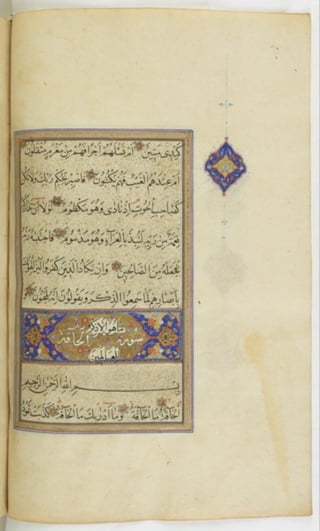 كَيْدِي مَتِينٌ أَمْ تَسْئَلُهُمْ أَجْرًا فَهُمْ مِنْ مَغْرَمٍ مُثْقَلُونَ
أَمْ عِنْدَهُمُ الْغَيْبُ فَهُمْ يَكْتُبُونَ فَاصْبِرْ لِحُكْمِ رَبِّكَ وَلَا تَكُنْ
كَصَاحِبِ الْحُوتِ إِذْ نَادَى وَهُوَ مَكْظُومٌ لَوْلَا أَنْ تَدَارَكَهُ
نِعْمَةٌ مِنْ رَبِّهِ لَنُبِذَ بِالْعَرَاءِ وَهُوَ مَذْمُومٌ فَاجْتَبَهُ رَبُّهُ
فَجَعَلَهُ مِنَ الصَّالِحِينَ وَإِنْ يَكَادُ الَّذِينَ كَفَرُوا لَيُزْلِقُونَكَ
بِأَبْصَارِهِمْ لَمَّا سَمِعُوا الذِّكْرَ وَيَقُولُونَ إِنَّهُ لَمَجْنُونٌ و
ما هو الا ذكر
سورة الحاقة
للعالمين
بِسْمِ اللَّهِ الرَّحْمَنِ الرَّحِيمِ
الْحَاقَّةُ مَا الْحَاقَّةُ وَمَا أَدْرَيكَ مَا الْحَاقَّةُ كَذَّبَتْ ثَمُودُ